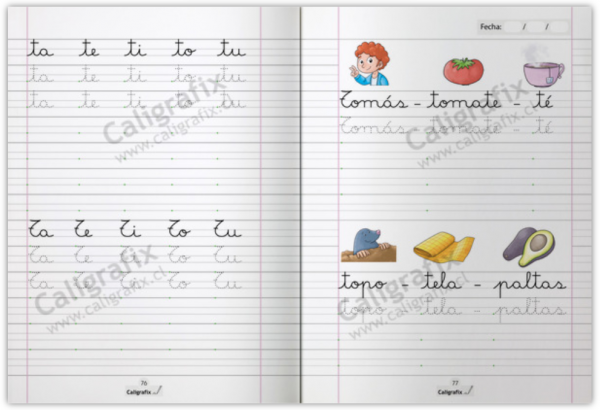 ta te ti to tu
ta te ti to tu
ta te ti to tu
Caligrafix
www.caligrafix.cl
Ta Te Ti To Tu
Ta Te Ti To Tu
Ta Te Ti To Tu
Caligrafix
www.caligrafix.cl
76
Caligrafix
Fecha: / /
Tomás - tomate - té
Tomás - tomate - té
Caligrafix
www.caligrafix.cl
topo - tela - paltas
topo - tela - paltas
Caligrafix
www.caligrafix.cl
77
Caligrafix